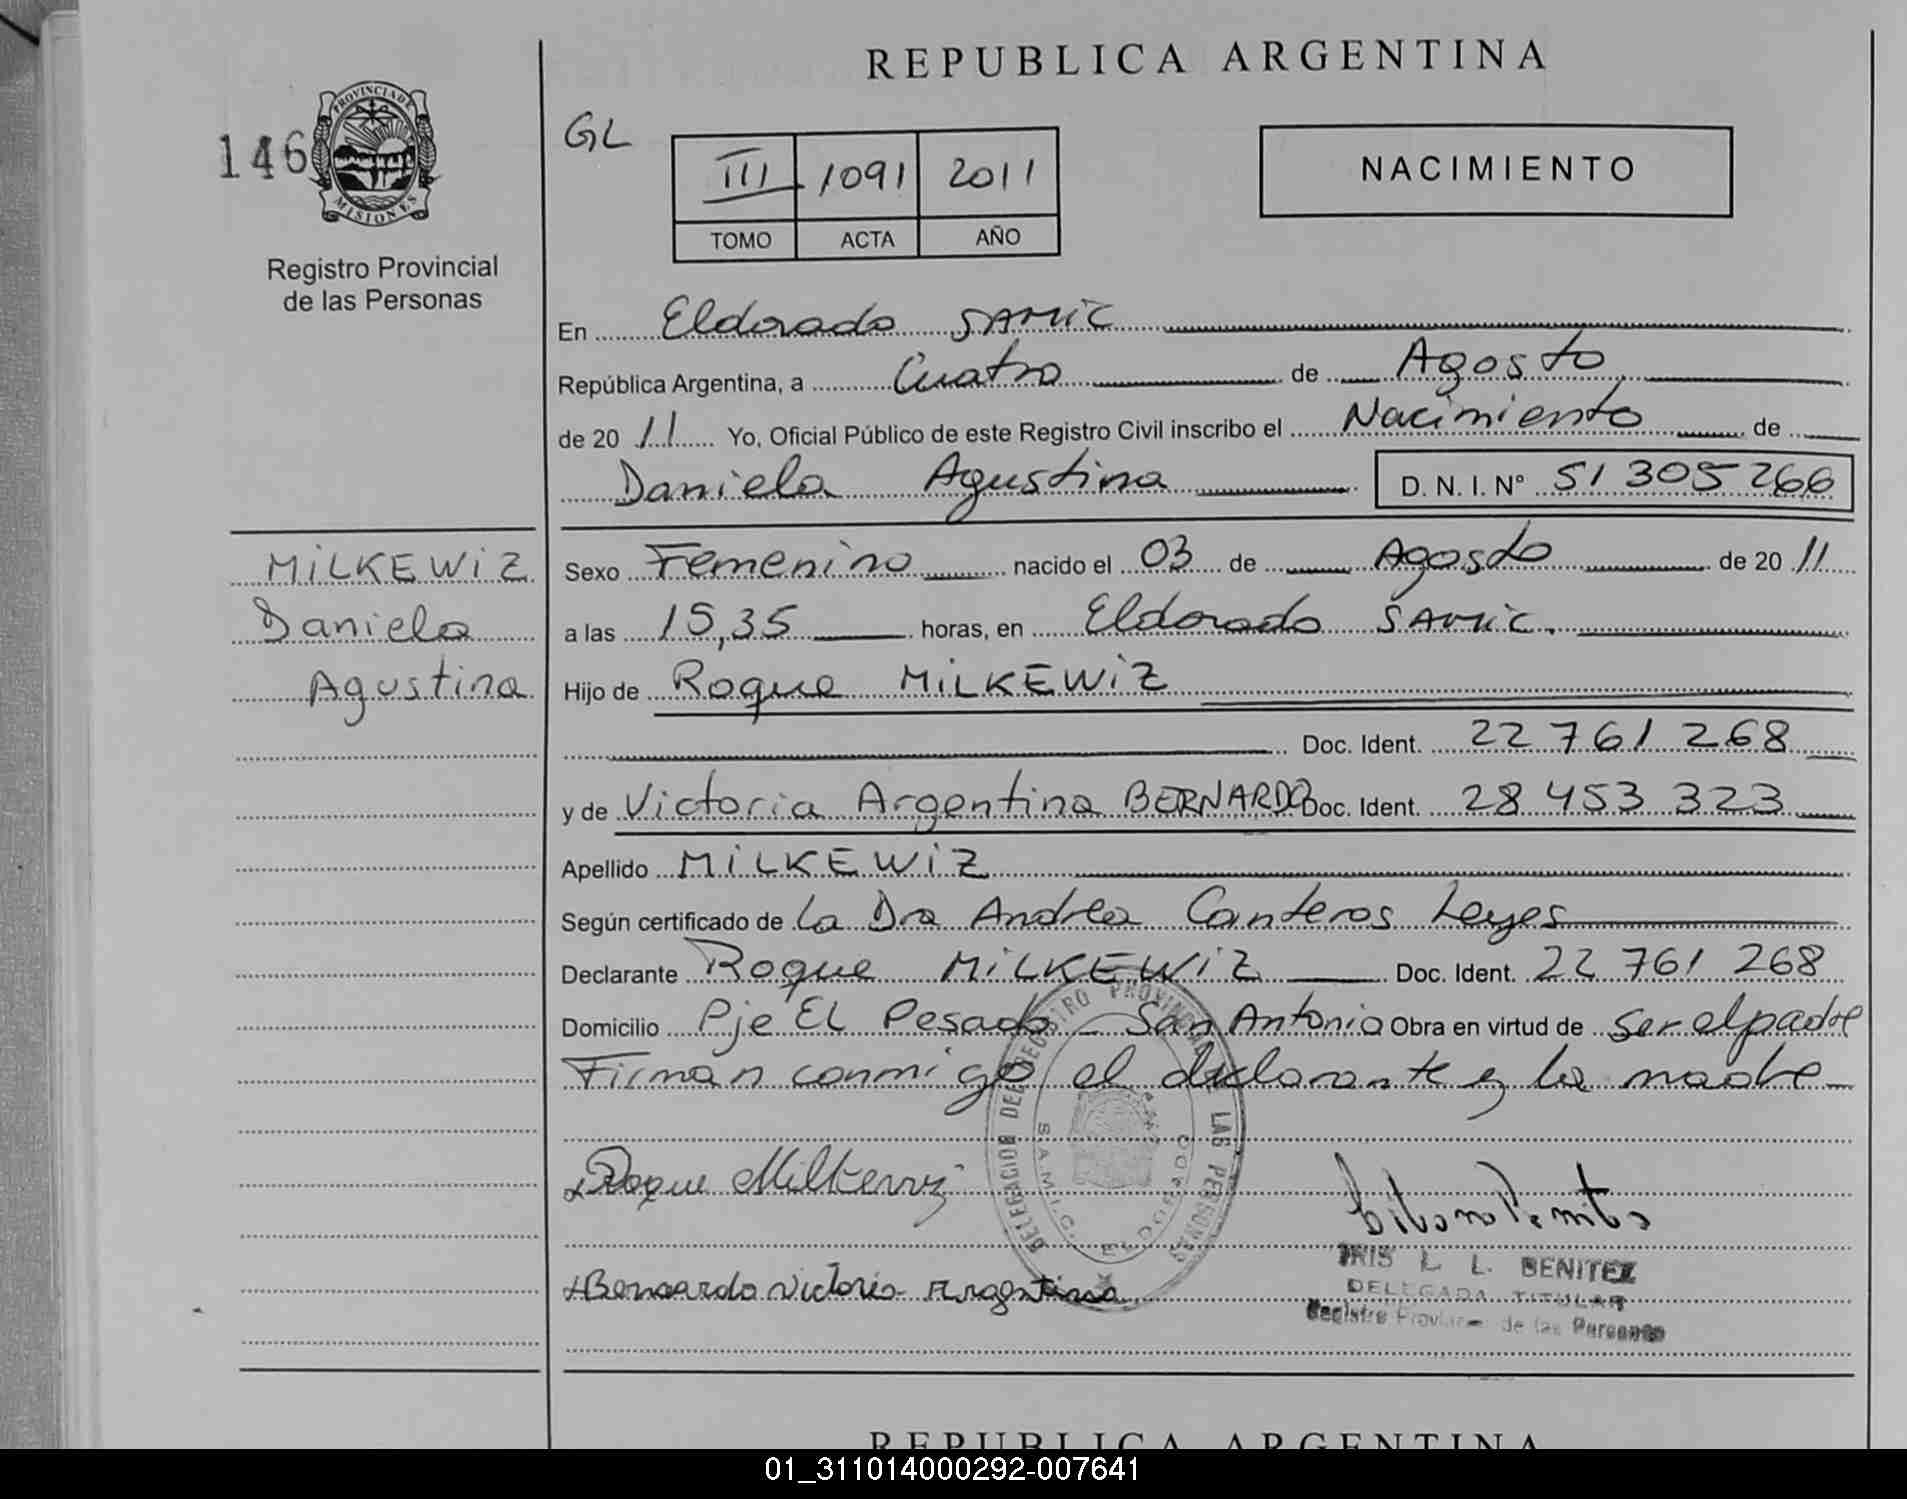 REPUBLICA ARGENTINA
146
PROVINCIA DE
MISIONES
Registro Provincial
de las Personas
GL
III 1091 2011
TOMO ACTA AÑO
NACIMIENTO
En Eldorado SAMIC
República Argentina, a Cuatro de Agosto
de 2011 Yo, Oficial Público de este Registro Civil inscribo el Nacimiento de
Daniela Agustina D. N. I. N° 51 305 266
MILKEWIZ
Daniela
Agustina
Sexo Femenino nacido el 03 de Agosto de 2011
a las 15,35 horas, en Eldorado SAMIC.
Hijo de Roque MILKEWIZ
Doc. Ident. 22 761 268
y de Victoria Argentina BERNARDO Doc. Ident. 28 453 323
Apellido MILKEWIZ
Según certificado de La Dra Andrea Canteros Leyes
Declarante Roque MILKEWIZ Doc. Ident. 22 761 268
Domicilio Pje EL Pesado - San Antonio Obra en virtud de ser el padre
Firman conmigo el declarante y la madre
DELEGACION DEL REGISTRO PROVINCIAL DE LAS PERSONAS
S.A.M.I.C. ELDORADO
Roque Milkewiz
Bernardo Victoria Argentina
IRIS L. L. BENITEZ
DELEGADA TITULAR
Registro Provincial de las Personas
REPUBLICA ARGENTINA
01_311014000292-007641